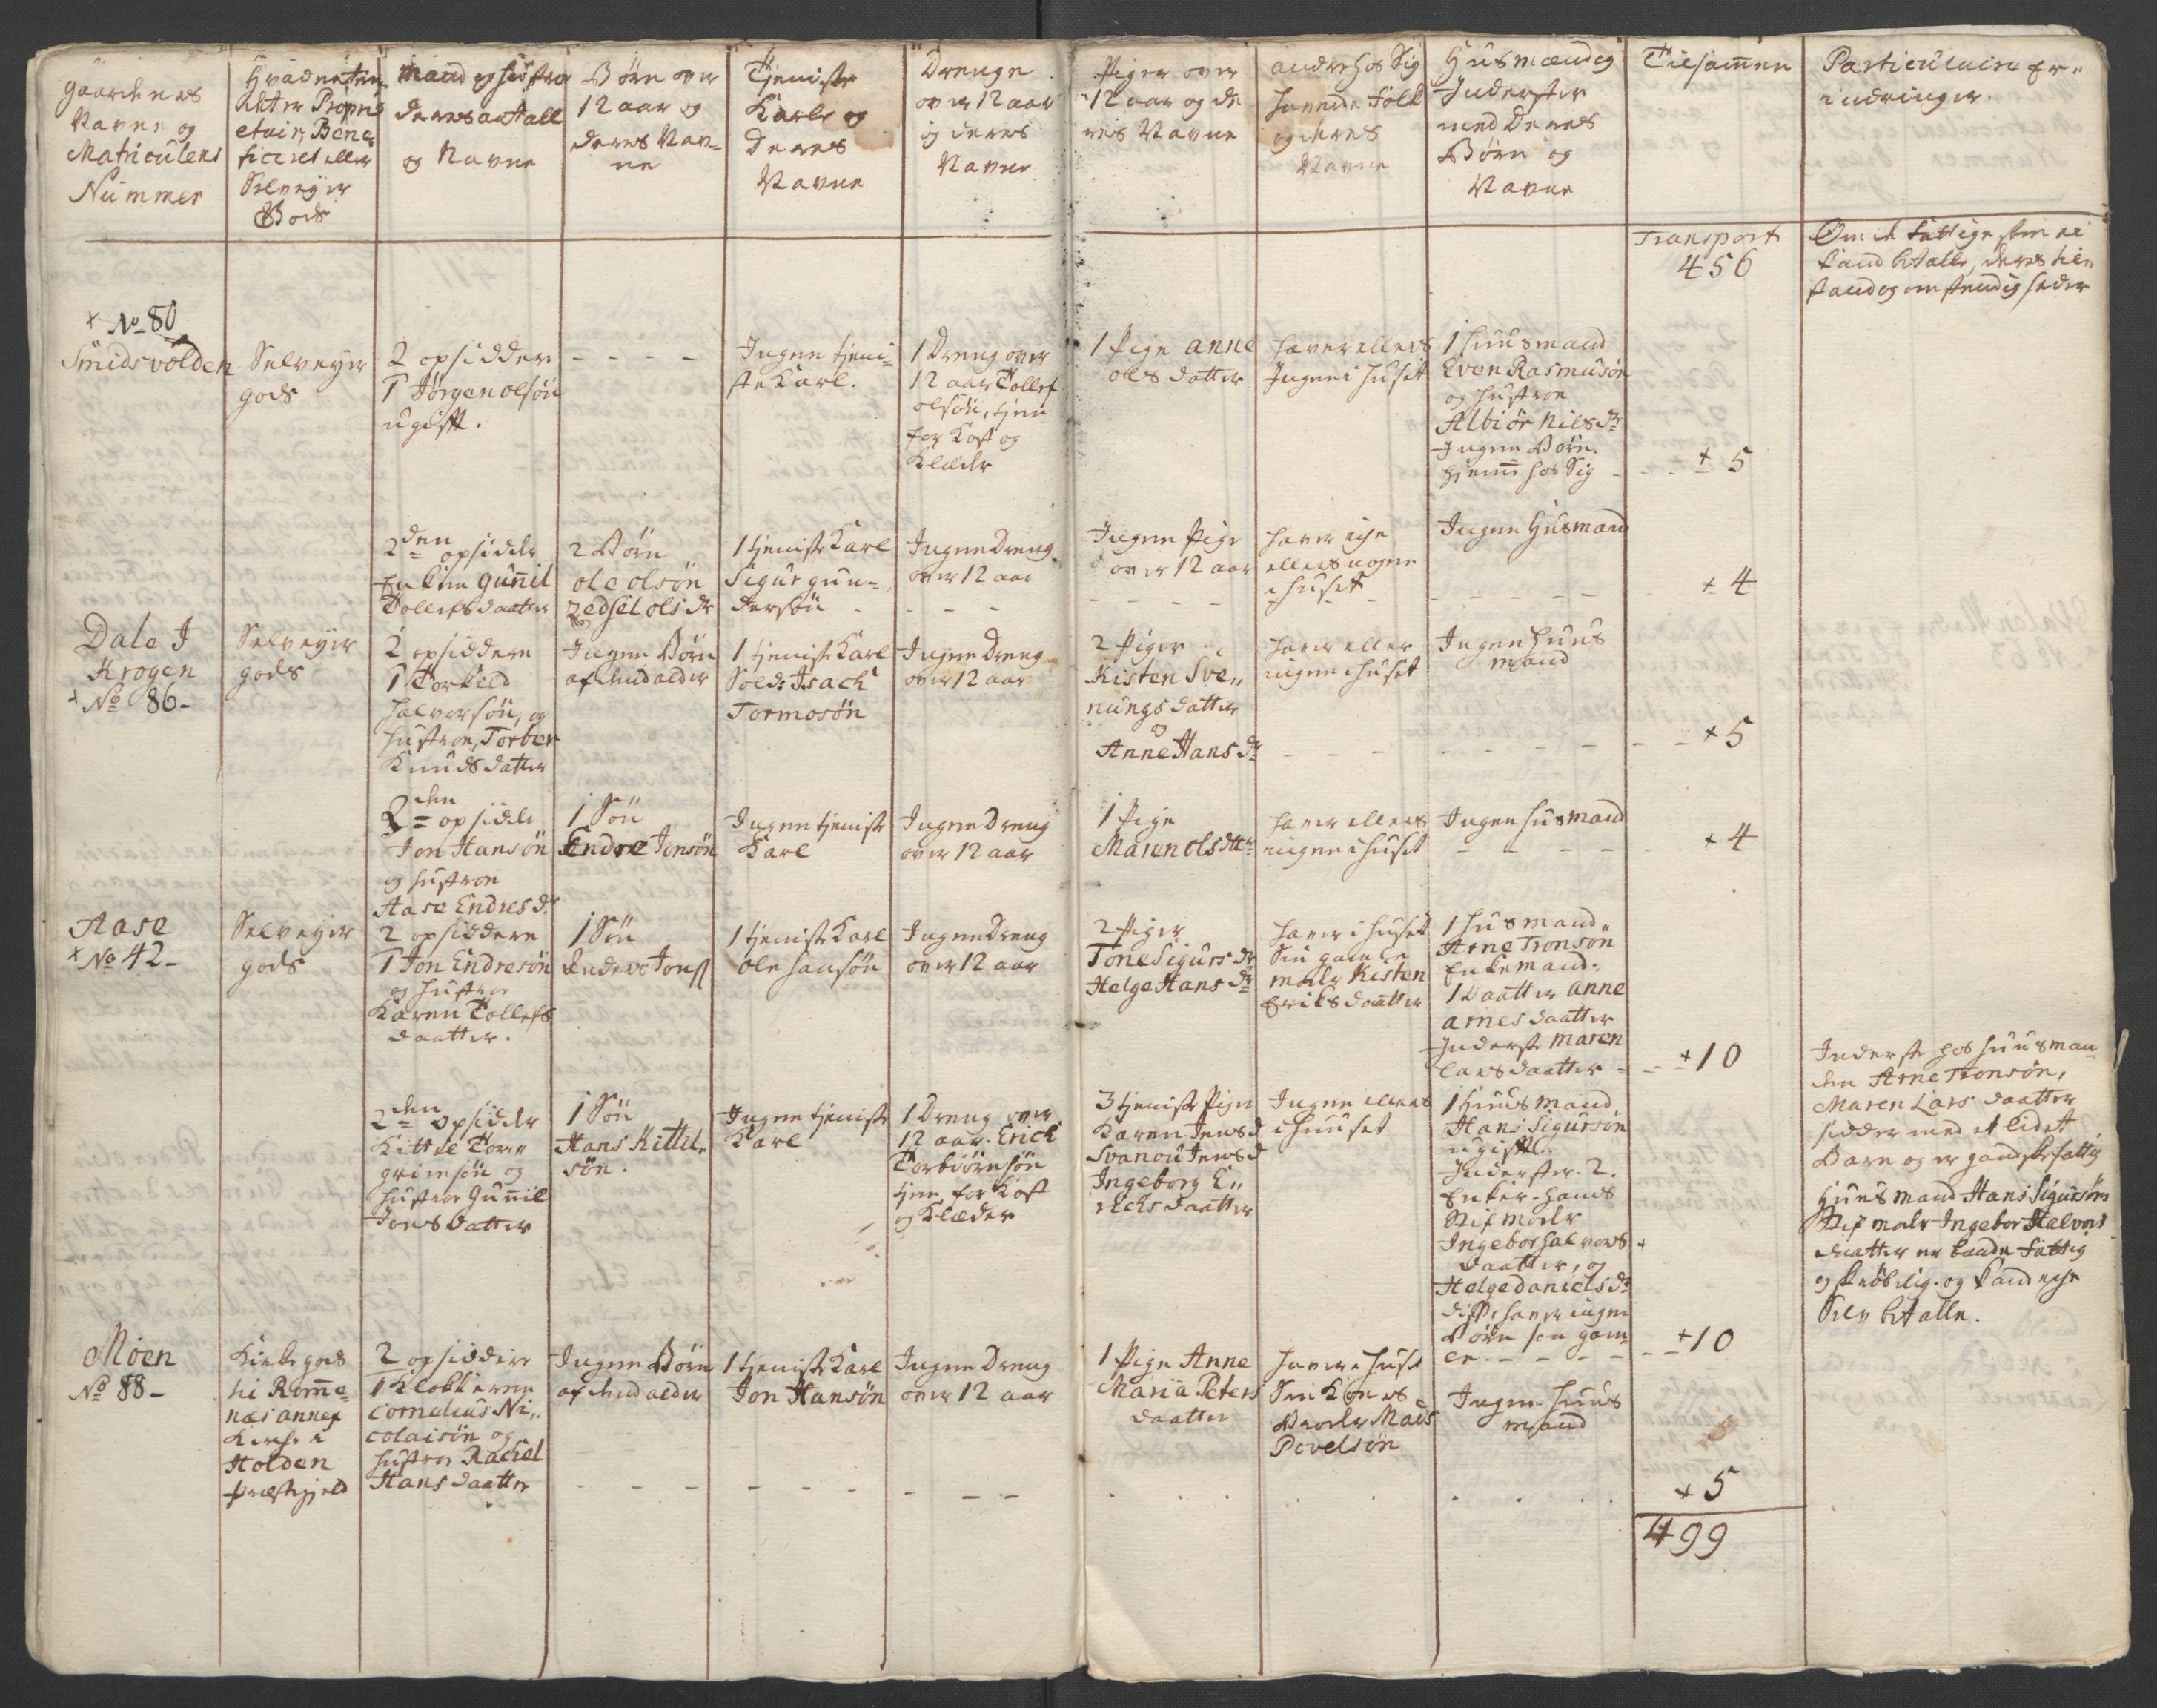 Gaardenes
Navne og
Matriculens
Nummer
Gods
Mand og hustroe
deres antall
og Navne
Børn over
12 aar og
deres Nav-
ne
Tjeniste
Karle og
Deres
Navne
Drenge
over 12 aar
og deres
Navne
Piger over
12 aar og de
res Navne
andre hos Sig
havende Folk
og deres
Navne
Husmænd og
Inderster
med Deres
Børn og
Navne
Tilsamen
Particulaire Er-
indringer.
Transport
456
Om de fattige som ei
kand betalle, deres til
stand og omstendigheder
+ No 80
Smidsvolden
Selveyer
gods
2 opsidder
1 Jørgen olsøn
ugift.
- - - -
Ingen tjeni-
ste Karl.
1 Dreng over
12 aar Tollef
olsøn, tjener
for Kost og
Klæder
1 Pige anne
ols datter
haver ellers
Ingen i huset
1 huusmand
Even Rasmusøn
og hustroe
Albiør Nils dr
Ingen Børn
hjemme hos Sig -
+ 5
2den opsidder
Enken Gunnil
Tollefs daatter
2 Børn
ole olsøn
zedsel ols dr
1 tjeniste Karl
Sigur gun-
dersøn -
Ingen Dreng
over 12 aar
- - -
Ingen Pige
over 12 aar
- - - -
haver iche
ellers nogen
i huset
Ingen Husmand
- - - - -
+ 4
Dale I
Krogen
+ No 86 -
Selveyer
gods
2 opsiddere
1 Torkild
halvorsøn, og
hustroe, Torber
Knuds datter
Ingen Børn
af den alder
1 tjeniste Karl
Sold: Isach
Tormosøn
Ingen Dreng
over 12 aar
2 Piger
Kisten Sve-
nungs datter
og
Anne Hans dr
haver eller
ingen i huset
Ingen huus
mand
+ 5
2den opsidder
Jon Hansøn
og hustroe
Aase Endres dr
1 Søn
Endre Jonsøn
Ingen tjeniste
Karl
Ingen Dreng
over 12 aar
1 Pige
Maren ols dttr
haver ellers
ingen i huset
Ingen husmand
- - - - -
+ 4
Aase
+ No 42 -
Selveyer
gods
2 opsiddere
1 Jon Endresøn
og hustroe
Karen Tollefs
daatter.
1 Søn
1 tjeniste Karl
ole hansøn
Ingen Dreng
over 12 aar
2 Piger
Tone Sigurs dr
Helge Hans dr
haver i huset
Sin gamle
moder Kisten
Eriks daatter
1 husmand
Arne Tronson
Enkemand.
1 Daatter anne
arnes daatter
Inderste maren
lars daatter -
+ 10
Inderste hos huusman
den Arne Tronsøn,
Maren Lars daatter
sidder med et lidet
Barn og er gandske fattig
2den opsidder
Kittil Tor-
grimsøn og
hustroe Gunnil
Jons datter
1 Søn
Hans Kittil-
søn.
Ingen tjeniste
Karl
1 Dreng over
12 aar. Erich
Torbiørnsøn
tjener for Kost
og Klæder
3 tjeniste Piger
Karen Jens d
Svanou Jens d
Ingeborg E-
richs daatter
Ingen ellers
i huuset
1 huusmand
Hans Sigursøn
ugifftl.
Inderster. 2.
Enker. hans
Stif moder
Ingebor halvors
daatter, og
Helge daniels dr
disse haver ingen
Børn saa gam-
le. - - - -
+ 10
Huusmand Hans Sigursøns
Stif moder Ingebor Halvors
daatter er baade fattig
og skrøbelig. og kand iche
Selv betalle.
Moen
No 88 -
Kirke gods
til Romme-
næs annex
Kirche i
Holden
præstegjeld
2 opsiddere
1 Klokkeren
Cornelius Ni-
colaisøn og
hustroe Rachel
Hans daatter
Ingen Børn
af den alder
1 tjeniste Karl
Jon Hansøn
Ingen Dreng
over 12 aar
1 Pige Anne
Maria Peters
daatter
haver i huset
Sin Kones
Broder Mads
Povelsøn
Ingen huus
mand
+ 5
499